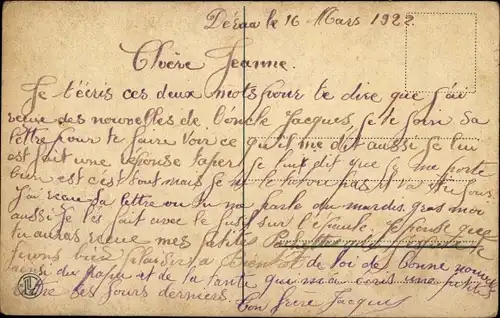 Déraa le 16 Mars 1922
Chère Jeanne.
Je t'écris ces deux mots pour te dire que j'ai
reçue des nouvelles de l'oncle Jacques je te join sa
lettre pour te faire voir ce qu'il me dit aussi je lui
est fait une reponse
je lui dit que je me porte
bien est c'est tout mais je ne le
J'ai reçau sa lettre ou tu me parle du mardis gras moi
aussi je l'es fait avec le fusil sur l'épaule. Je pense que
tu auras reçue mes petites
bien plaisir a Bientot de toi de bonne nouvelle
ausi du papa et de la tante qui m'a ecris une petite
lettre ces jours derniers. Ton frère Jacques